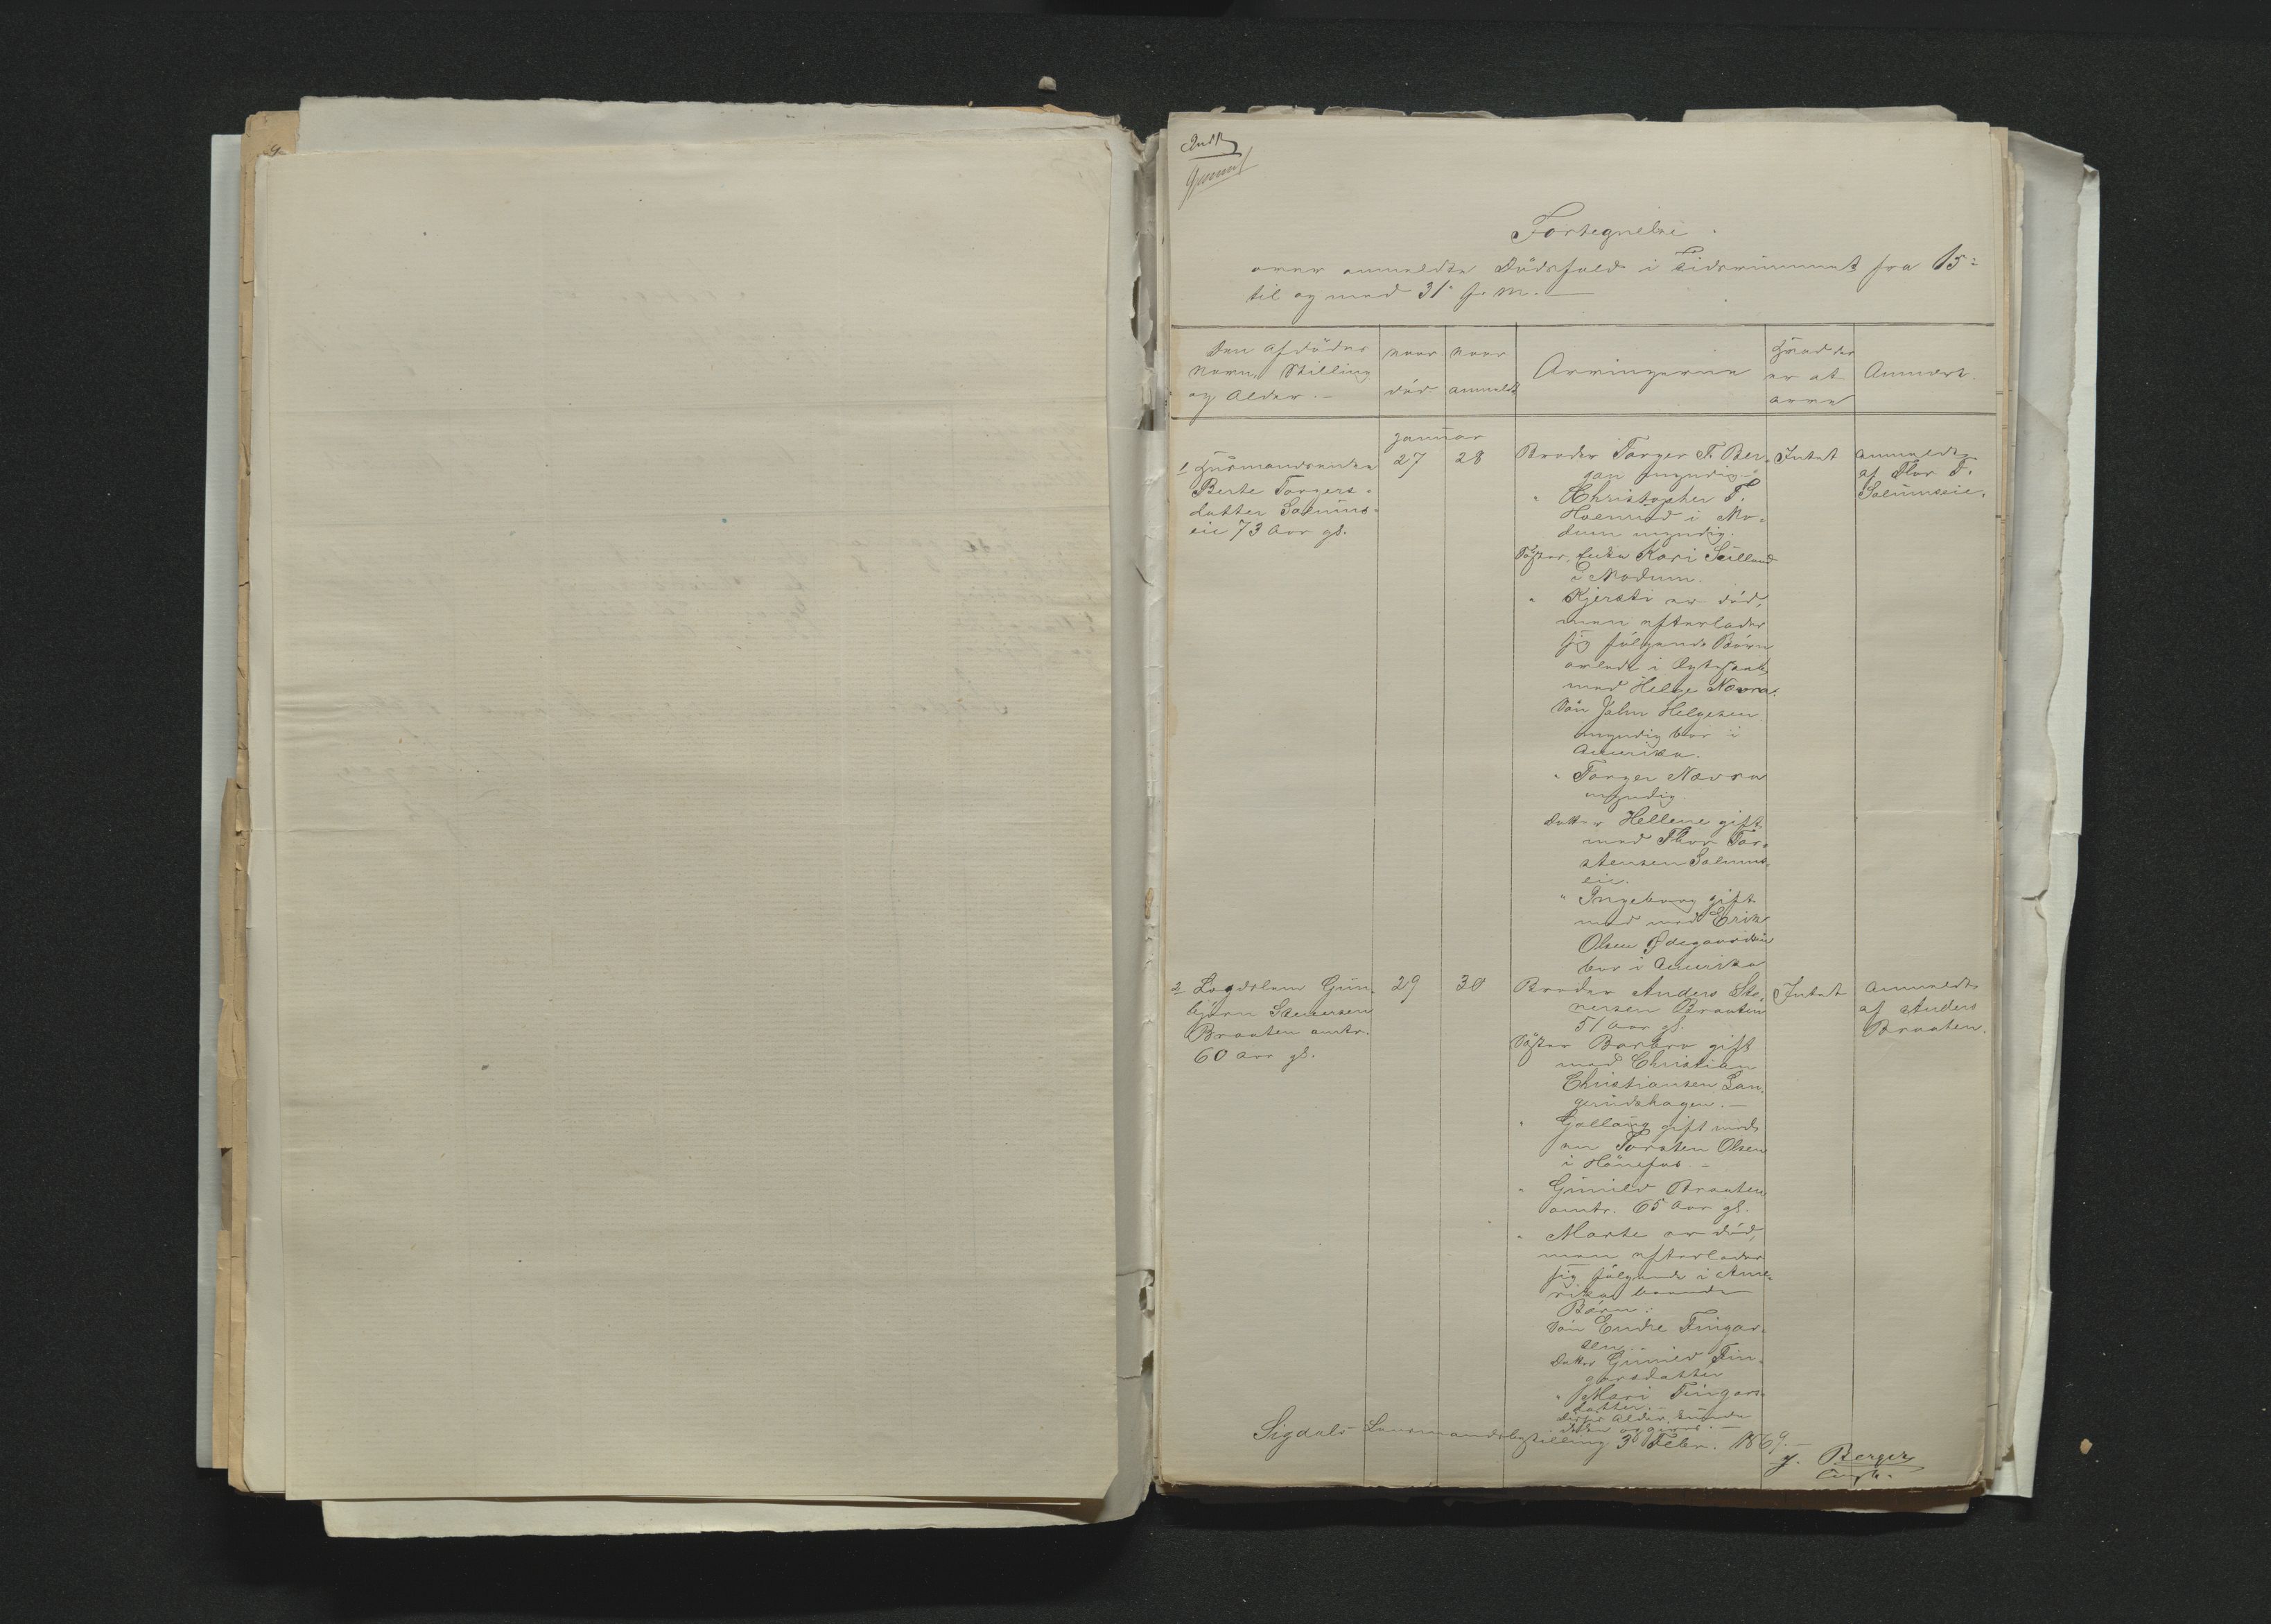 Fortegnelse.
over anmeldte Dödsfald i Tidsrummet fra 15
til og med 31 f. M.
Den afdödes
Navn, Stilling
og Alder.
naar
död
naar
anmeldt
Arvingerne
Hvad der
er at
arve
Anmærk.
Januar
1 Husmandsenken
Berte Torgers-
datter Solums-
eie 73 Aar gl.
27
28
Broder Torger T. Ber-
gan myndig
" Christopher T.
Hvenrud i Mo-
dum myndig.
Söster, Enke Kari
i Modum.
" Kjersti er död,
men efterlader
sig fölgende Börn
avlede i Ægteskab
med Helge Nævra.
Sön John Helgesen
myndig bor i
Amerika.
" Torger Nævra
myndig.
Datter Hellene gift
med Thor Tor-
stensen Solums-
eie.
" Ingeborg gift
med med Erik
Olsen Ødegaarden
bor i Amerika
Intet
Anmeldt
af Thor T.
Solumseie.
2 Lægdslem Gun-
björn Stenersen
Braaten omtr.
60 Aar gl.
29
30
Broder Anders Ste-
nersen Braaten
51 Aar gl.
Söster Barbro gift
med Christian
Christiansen Lan-
gerudshagen.
" Gollaug gift med
en Torsten Olsen
i Hönefos
" Gunild Braaten
omtr. 65 Aar gl.
" Marte er död,
men efterlader
sig fölgende i Ame-
rika boende
Börn:
Sön Endre Fingar-
sen
Datter Gunild Fin-
garsdatter
" Mari Fingars-
datter.
Disses Alder kunde
ikke opgives.
Intet
Anmeldt
af Anders
Braaten.
Sigdals Lensmandsbestilling 3 Febr. 1869.
Berger